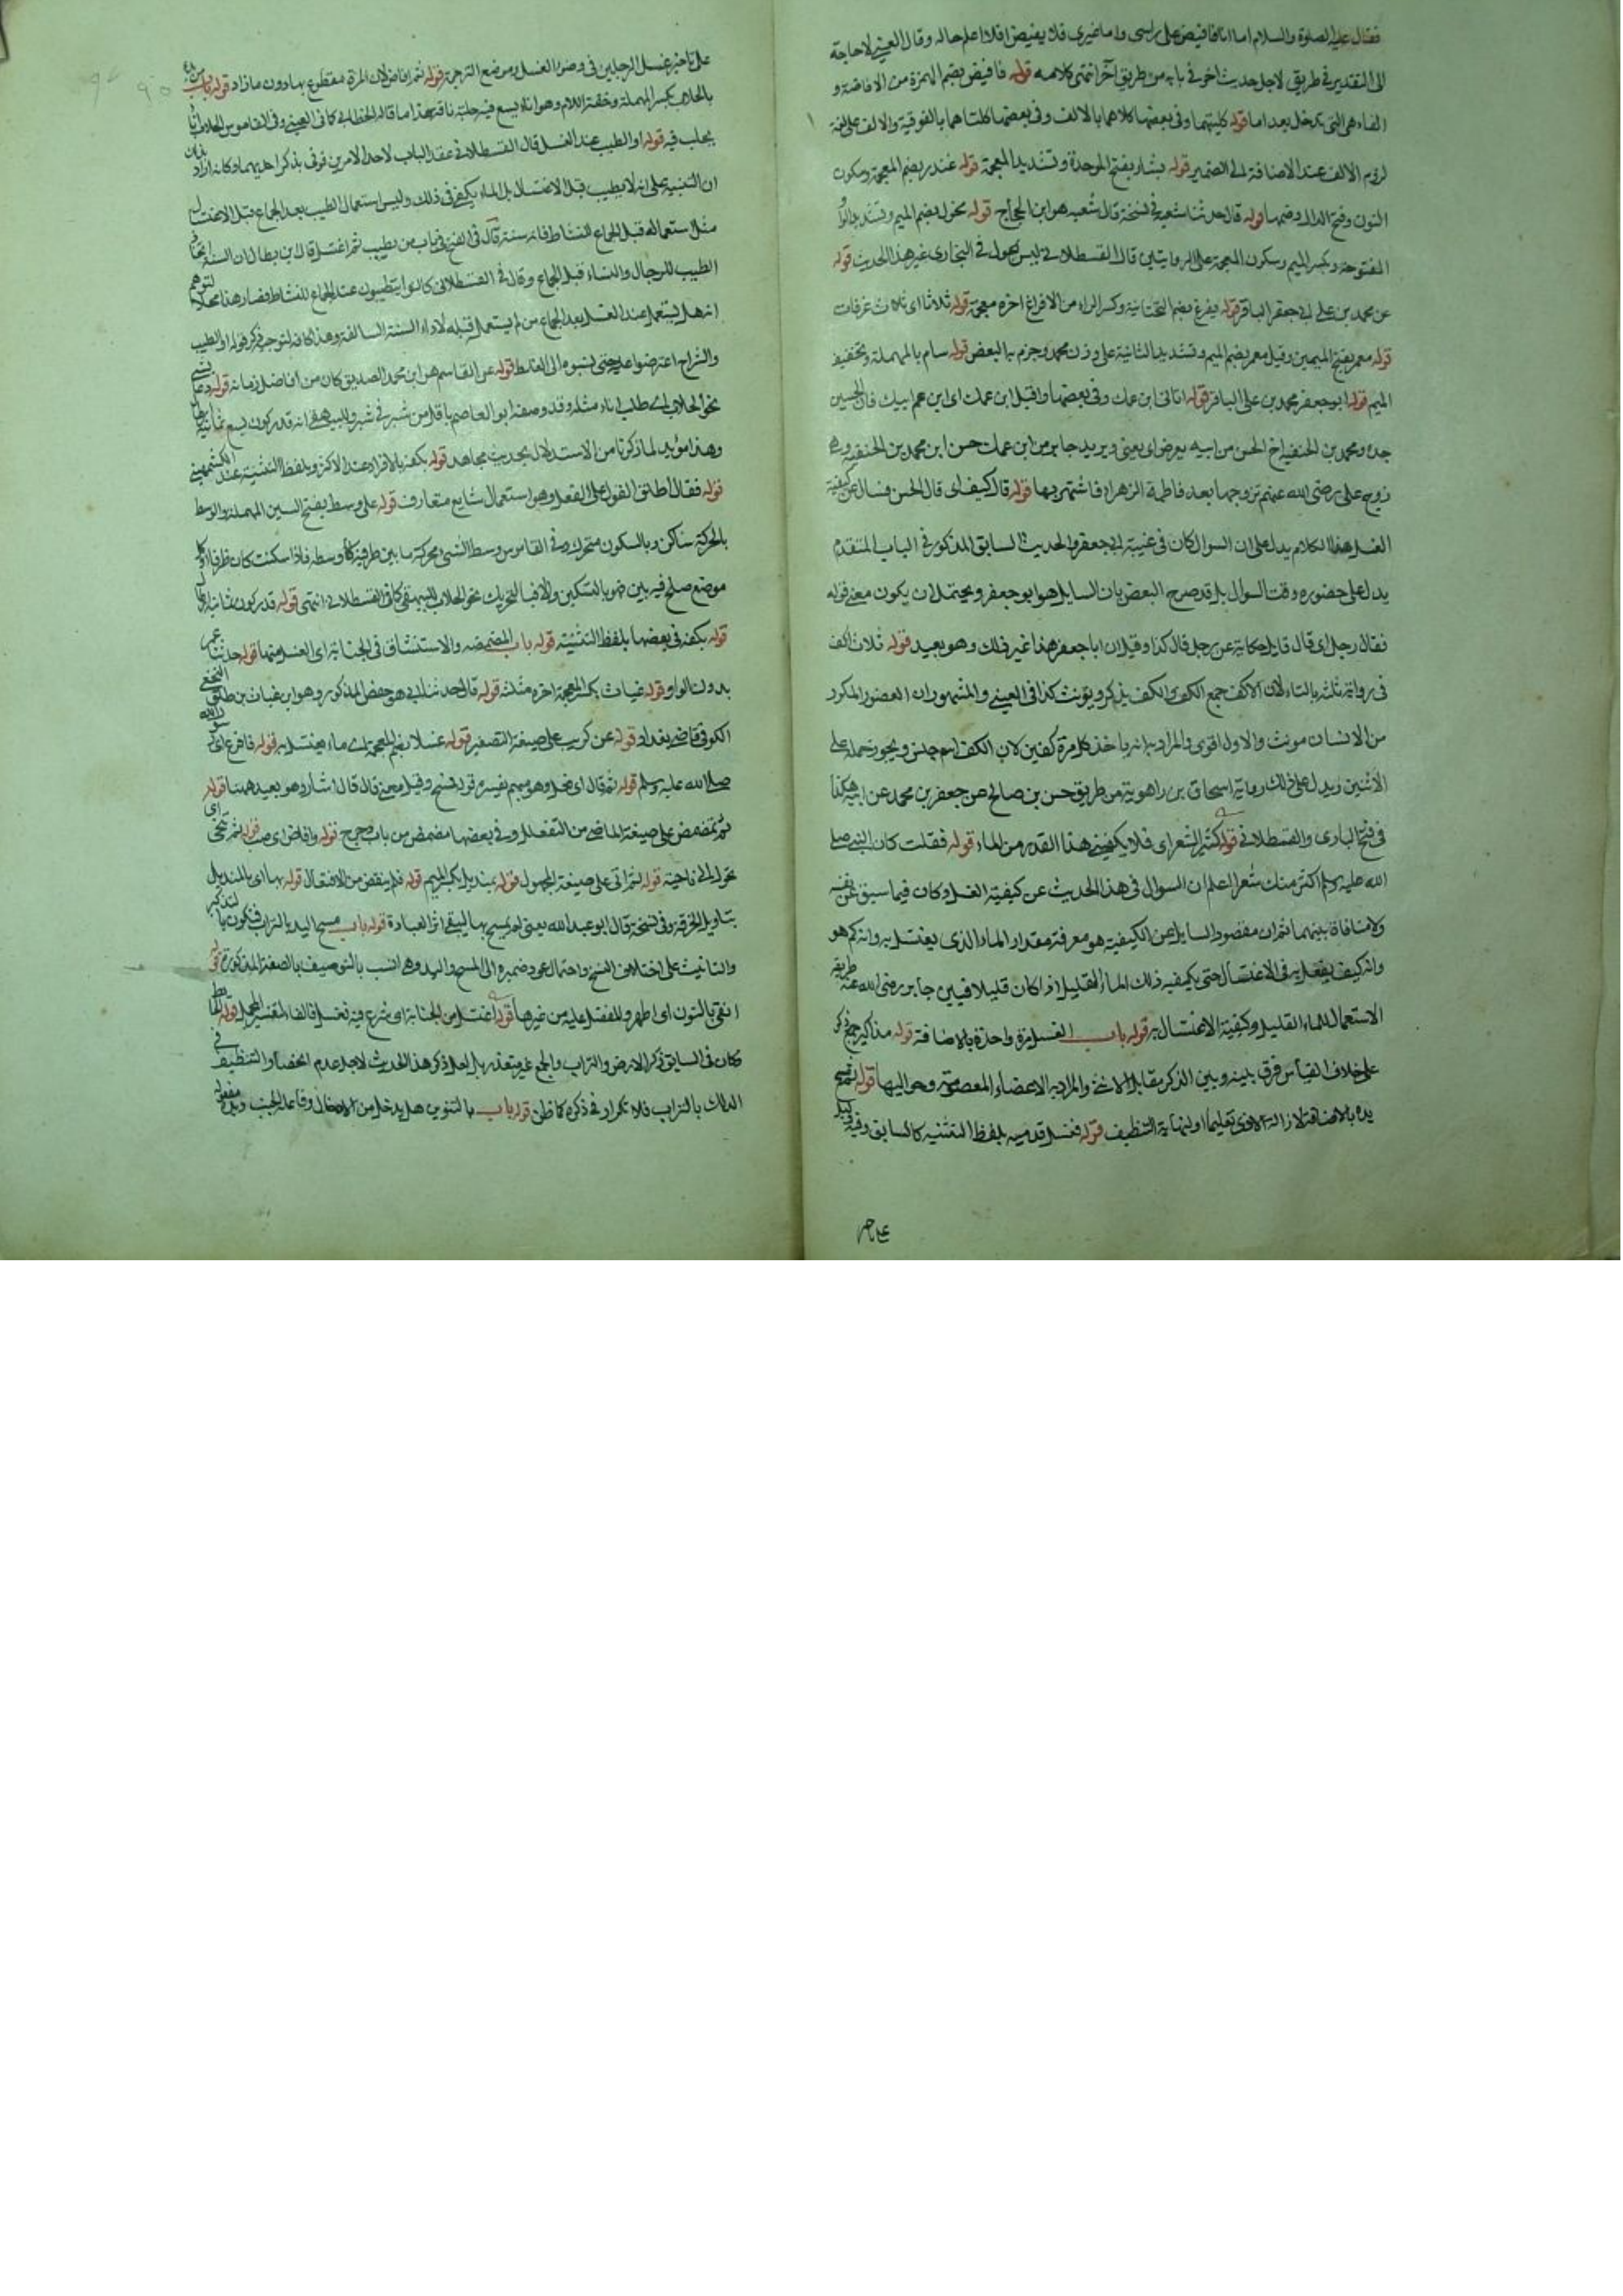 فقال عليه الصلوة والسلام اما انا فافيض على راسى واما غيرى فلا يفيض او لا اعلم حاله وقال العينى لا حاجة
الى التقدير فى طريق لاجل حديث اخر فى بابه من طريق آخر انتهى كلامه قوله فافيض بضم الهمزة من الافاضة و
الفاء هى التى تدخل بعد اما قوله كليتهما وفى بعضها كلاهما بالالف وفى بعضها كلتاهما بالفوقية والالف على لغة
لزوم الالف عند الاضافة الى الضمير قوله بشار بفتح الموحدة وتشديد المعجمة قوله غندر بضم المعجمة وسكون
النون وفتح الدال وضمها قوله قال حدثنا شعبة فى نسخة قال شعبه هو ابن الحجاج قوله مخول بضم الميم وتشديد الواو
المفتوحة وبكسر الميم وسكون المعجمة على الروايتين قال القسطلانى ليس لمخول فى البخارى غير هذا الحديث قوله
عن محمد بن على ابى جعفر الباقر قوله يفرغ بضم التحتانية وكسر الراء من الافراغ اخره معجمة قوله ثلاثا اى ثلاث غرفات
قوله معمر بفتح الميمين وقيل معمر بضم الميم وتشديد الثانية على وزن محمد وجزم به البعض قوله سام بالمهملة وتخفيف
الميم قوله ابو جعفر محمد بن على الباقر قوله اتانى ابن عمك وفى بعضها واقبل ابن عمك اى ابن عم ابيك فان الحسين
جده ومحمد بن الحنفية اخ الحسن من ابيه يعرض اى يعنى ويريد جابر من ابن عمك حسن ابن محمد بن الحنفية وهى
زوج على رضى الله عنهم تزوجها بعد فاطمة الزهراء فاشتهر بها قوله قال كيف اى قال الحسن فسال عن كيفية
الغسل هذا الكلام يدل على ان السوال كان فى غيبة ابى جعفر والحديث السابق المذكور فى الباب المتقدم
يدل على حضوره وقت السوال بل قد صرح البعض بان السايل هو ابو جعفر ويحتمل ان يكون معنى قوله
فقال رجل اى قال قايل حكاية عن رجل قال كذا وقيل ان ابا جعفر هذا غير ذلك وهو بعيد قوله ثلاث اكف
فى رواية ثلثة بالتاء لان الاكف جمع الكف والكف يذكر ويونث كذا فى العينى والمشهور ان العضو المكرر
من الانسان مونث والاول اقوى والمراد به انه ياخذ كل مرة كفين لان الكف اسم جنس ويجوز حمله على
الاثنين ويدل على ذلك رواية اسحاق بن راهوية من طريق حسن بن صالح عن جعفر بن محمد عن ابيه هكذا
فى فتح البارى والقسطلانى قوله كثير الشعر اى فلا يكفينى هذا القدر من الماء قوله فقلت كان النبى صلى
الله عليه وسلم اكثر منك شعرا اعلم ان السوال فى هذا الحديث عن كيفية الغسل وكان فيما سبق عن نفسه
ولا منافاة بينهما ثم ان مقصود السايل من الكيفية هو معرفة مقدار الماء الذى يغتسل به وانه كم هو
وانه كيف يفعل به فى الاغتسال حتى يكفيه ذلك الماء القليل اذا كان قليلا فبين جابر رضى الله عنه طريقة
الاستعمال للماء القليل وكيفية الاغتسال به قوله باب الغسل مرة واحدة بالاضافة قوله مذاكيره جمع ذكر
على خلاف القياس فرق بينه وبين الذكر مقابل الانثى والمراد به الاعضاء المعصوبة وحواليها قوله ثم مسح
يده بالارض لازالة الاذى تعليما او لنهاية التنظيف قوله فغسل قدميه بلفظ التثنيه كالسابق وفيه
على تاخير غسل الرجلين فى وضوء الغسل وموضع الترجمة قوله ثم افاض لان المرة مقطوع بها دون ما زاد قوله باب من بدا
بالحلاب بكسر المهملة وخفة اللام وهو اناء يسع فيه حلبة ناقة هذا ما قاله الخطابى كما فى العينى وفى القاموس الحلاب اناء
يحلب فيه قوله او الطيب عند الغسل قال القسطلانى عقد الباب لاحد الامرين فوفى بذكر احديهما وكانه اراد بذلك
ان التنبيه على انه لا يطيب قبل الاغتسال بل الماء يكفى فى ذلك وليس استعمال الطيب بعد الجماع قبل الاغتسال
مثل استعماله قبل الجماع للنشاط فانه سنة قال فى الفتح فى باب من تطيب ثم اغتسل قال ابن بطال ان السنة اتخاذ
الطيب للرجال والنساء قبل الجماع وقال فى القسطلانى كانوا يتطيبون عند الجماع للنشاط فصار هذا محلا لتوهم
انه هل يستعمل عند الغسل بعد الجماع من لم يستعمل قبله لاداء السنة السالفة وهذا كافه لتوجيه ذكر قوله او الطيب
والشراح اعترضوا عليه حتى نسبوه الى الغلط قوله عن القاسم هو ابن محمد الصديق كان من افاضل زمانه قوله دعا بشئ
نحو الحلاب اى طلب اناء مثله وقد وصفه ابو العاصم باقل من شبر فى شبر وللبيهقى انه قدر كوز يسع ثمانية ارطال
وهذا مؤيد لما ذكرنا من الاستدلال بحديث مجاهد قوله بكفه بالافراد عند الاكثر وبلفظ التثنية عند الكشميهنى
قوله فقال اطلق القول على الفعل وهو استعمال شايع متعارف قوله على وسط بفتح السين المهملة والوسط
بالحركة ساكن وبالسكون متحرك وفى القاموس وسط الشئ محركة ما بين طرفيه كاوسطه فاذا سكنت كان ظرفا او كل
موضع صلح فيه بين فهو بالتسكين والا فبالتحريك نحو الحلاب للبيهقى كما فى القسطلانى انتهى قوله قدر كوز ثمانية ارطال
قوله بكفه فى بعضها بلفظ التثنيه قوله باب المضمضه والاستنشاق فى الجنابة اى الغسل منها قوله حدثنا عمر
بدون الواو قوله غياث بكسر المعجمة اخره مثلثة قوله قال حدثنا ابى هو حفص المذكور وهو ابن غياث بن طلق النخعى
الكوفى قاضى بغداد قوله عن كريب على صيغة التصغير قوله غسلا بضم المعجمة اى ماء يغتسل به قوله فافرغ اى رسول الله
صلى الله عليه وسلم قوله ثم قال اى فعل وهو مبهم تفسيره قوله فمسح وقيل معنى قال قال اشار وهو بعيد ههنا قوله
ثم تمضمض على صيغة الماضى من التفعلل وفى بعضها مضمض من باب دحرج قوله وافاض اى صب قوله ثم تنحى اى
تحول الى ناحية قوله ثم اتى على صيغة المجهول قوله بمنديل بكسر الميم قوله فلم ينفض من الافتعال قوله بها اى بالمنديل
بتاويل الخرقة وفى نسخة قال ابو عبد الله يعنى لم يتمسح بها ليبقى اثر العبادة قوله باب مسح اليد بالتراب فتكون بالتذكير
والتانيث على اختلاف النسخ واحتمال عود ضميره الى المسح واليد وهى انسب بالتوصيف بالصفة المذكورة قوله
انقى بالنون اى اطهر والمفضل عليه من غيرها قوله اغتسل من الجنابة اى شرع فيه فغسل فالفاء لتفسير المجمل قوله الحائط
مكان فى السابق ذكر الارض والتراب والجمع غير متعذر بل لعل ذكر هذا الحديث لاجل عدم انحصار التنظيف فى
الدلك بالتراب فلا تكرار فى ذكره كما ظن قوله باب بالتنوين هل يدخل من الادخال وفاعله الجنب ويده مفعوله